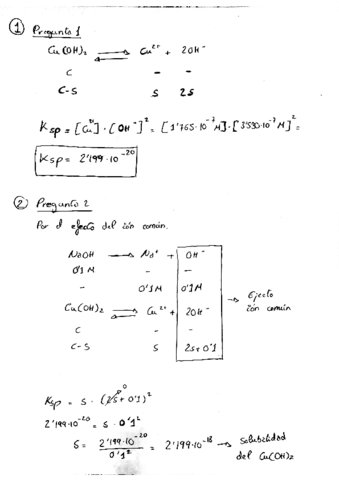 ① Pregunta 1
Cu(OH)₂ ⇌ Cu²⁺ + 2OH⁻
C - -
C-S S 2S
Ksp = [Cu²⁺]·[OH⁻]² = [1'765·10⁻⁷ M]·[3'530·10⁻⁷ M]² =
Ksp = 2'199·10⁻²⁰
② Pregunta 2
Por el efecto del ión común.
NaOH → Na⁺ + OH⁻
0'1M - -
- 0'1M 0'1M
Cu(OH)₂ ⇌ Cu²⁺ + 2OH⁻ → Efecto ión común
C - -
C-S S 2s+0'1
Ksp = S · (2s+0'1)² 0
2'199·10⁻²⁰ = S · 0'1²
S = 2'199·10⁻²⁰ / 0'1² = 2'199·10⁻¹⁸ → solubilidad
del Cu(OH)₂